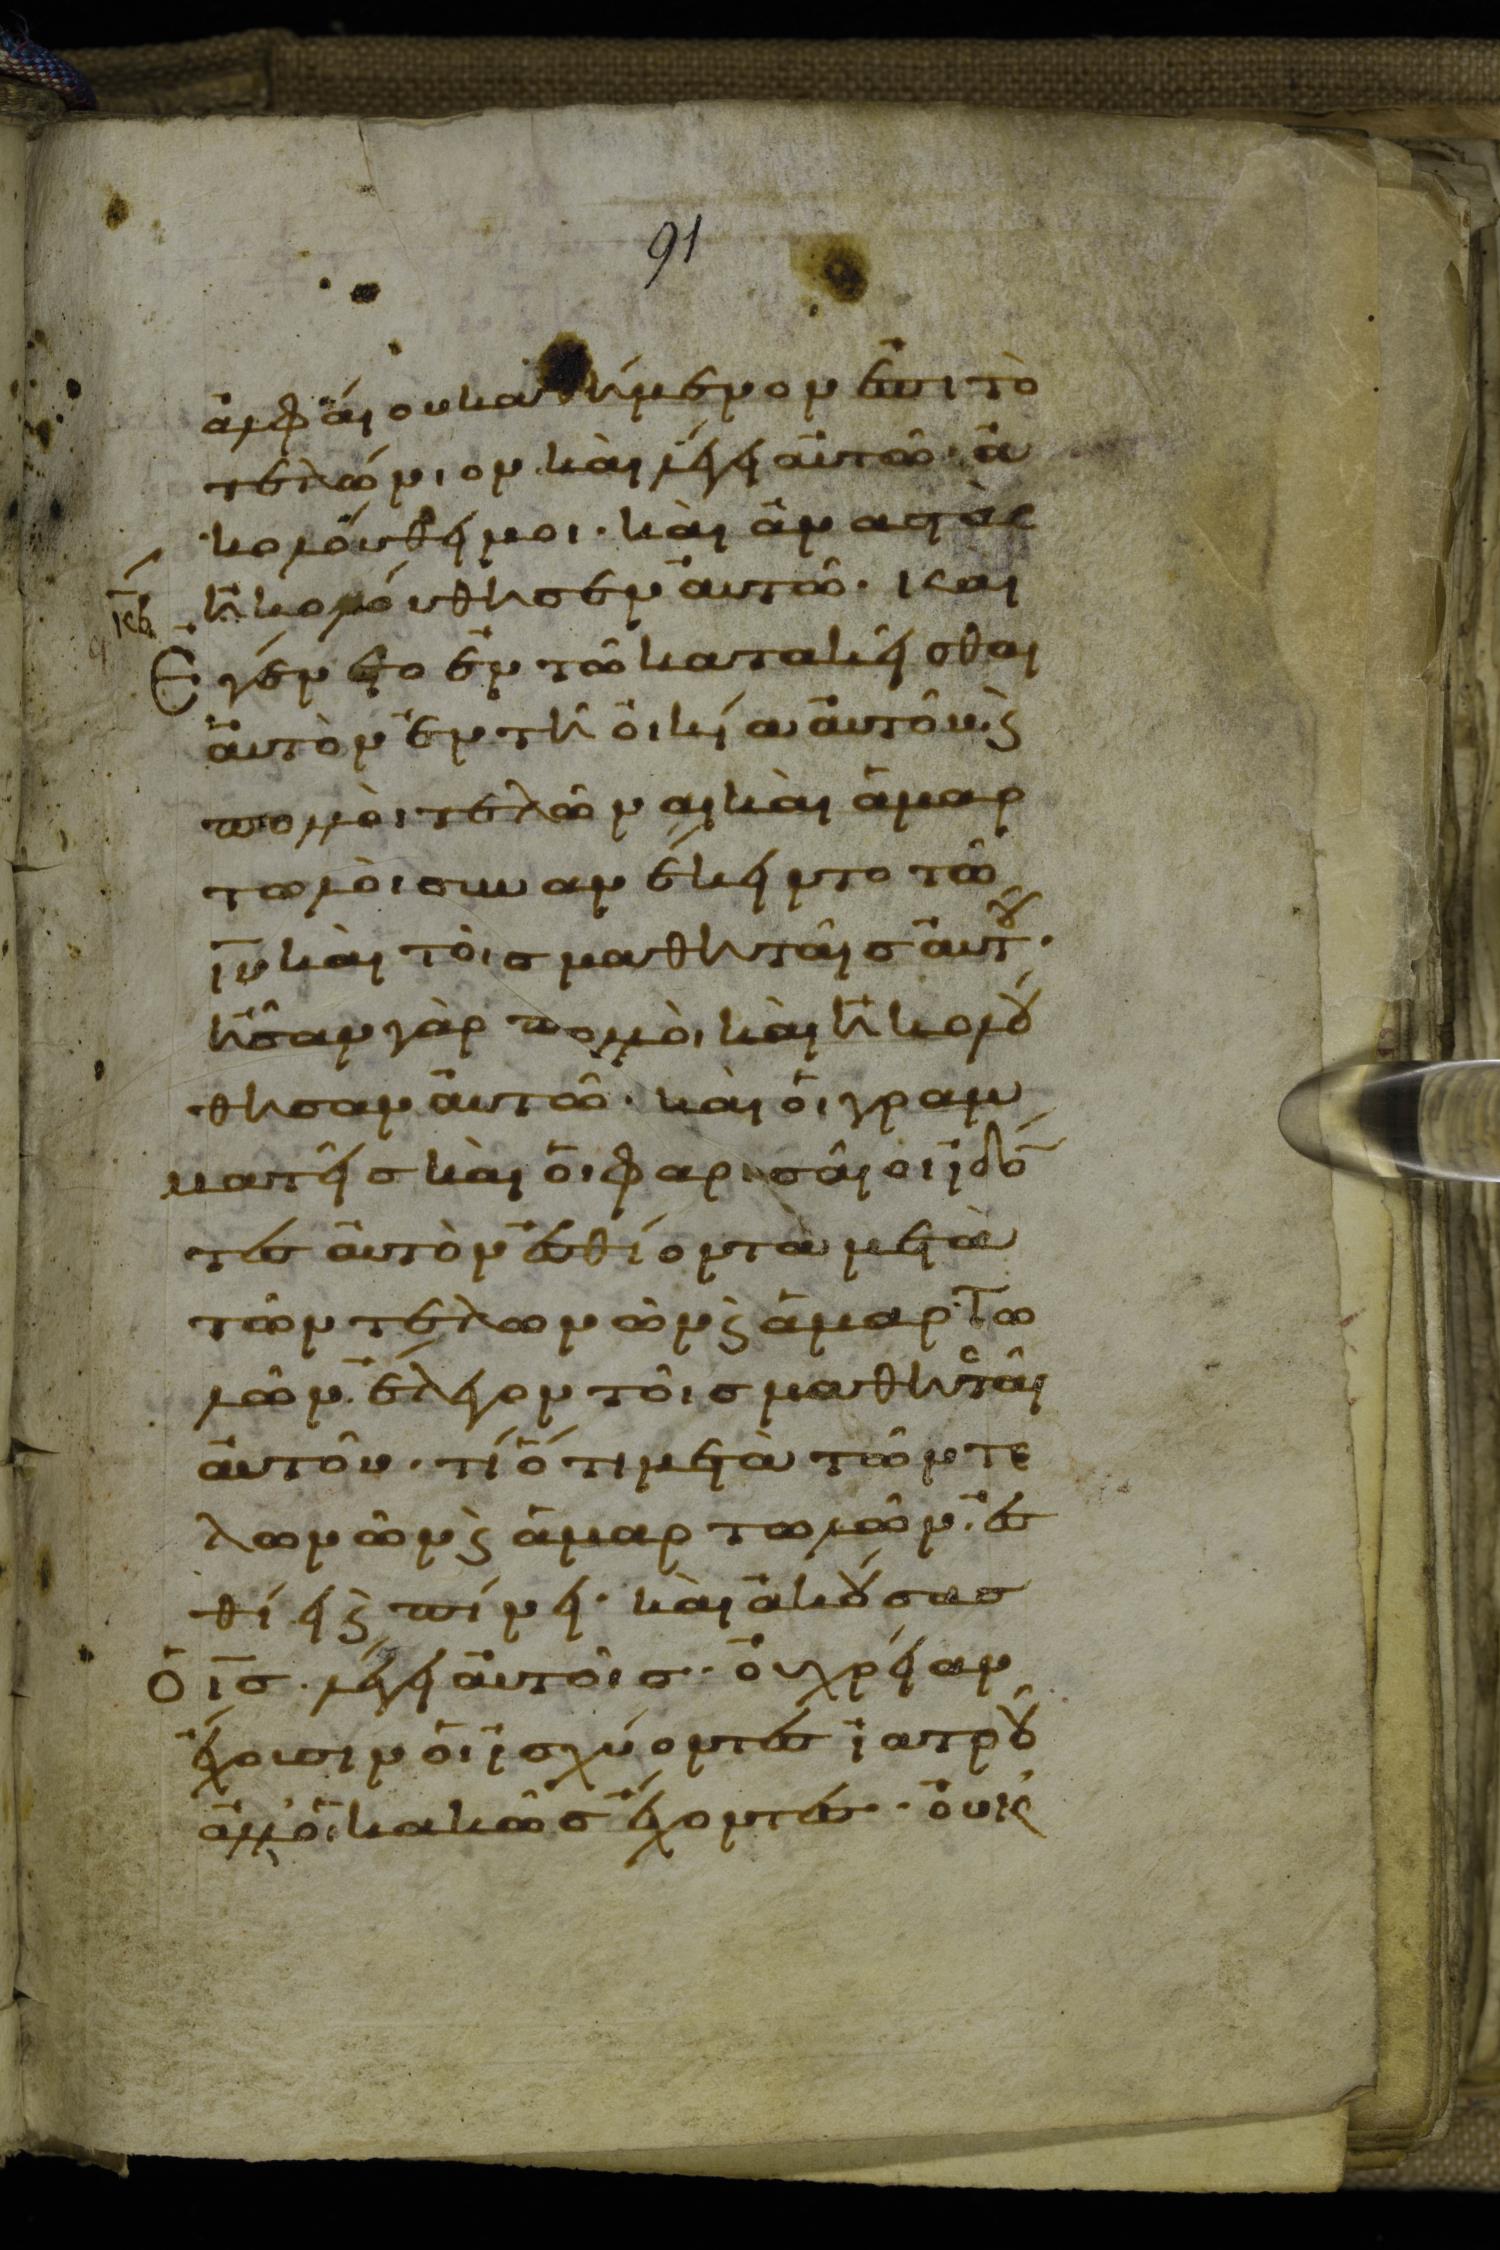 91
ἀλφαίου καθήμενον ἐπι τὸ
τελώνιον. καὶ λέγει αὐτῶ· ἀ
κολούθει μοι· καὶ ἀναστὰς
ἠκολούθησεν αὐτῶ· και
κβ
Ἐγένετο ἐν τῶ κατακεῖσθαι
ἀυτὸν ἐν τῆ ὀικία αὐτοῦ. ϗ
πολλοὶ τελῶναι καὶ ἁμαρ
τωλοὶ συνανέκειντο τῶ
ιυ καὶ τοῖς μαθηταῖς αὐτοῦ·
ἦσαν γὰρ πολλοὶ καὶ ἠκολού
θησαν αὐτῶ· καὶ οἱ γραμ
ματεῖς καὶ οἱ φαρισαῖοι ἰδό
τες αὐτὸν ἐσθίοντα μετὰ
τῶν τελωνῶν ϗ ἁμαρτω
λῶν. ἔλεγον τοῖς μαθηταῖς
αὐτοῦ· τί ὅτι μετὰ τῶν τε
λωνῶν ϗ ἁμαρτωλῶν ἐσ
θίει ϗ πίνει· καὶ ἀκούσας
ὁ ις. λέγει αὐτοῖς· οὐ χρείαν
ἔχουσιν οἱ ἰσχύοντες ἰατροῦ
ἀλλ' οἱ κακῶς ἔχοντες· οὐκ